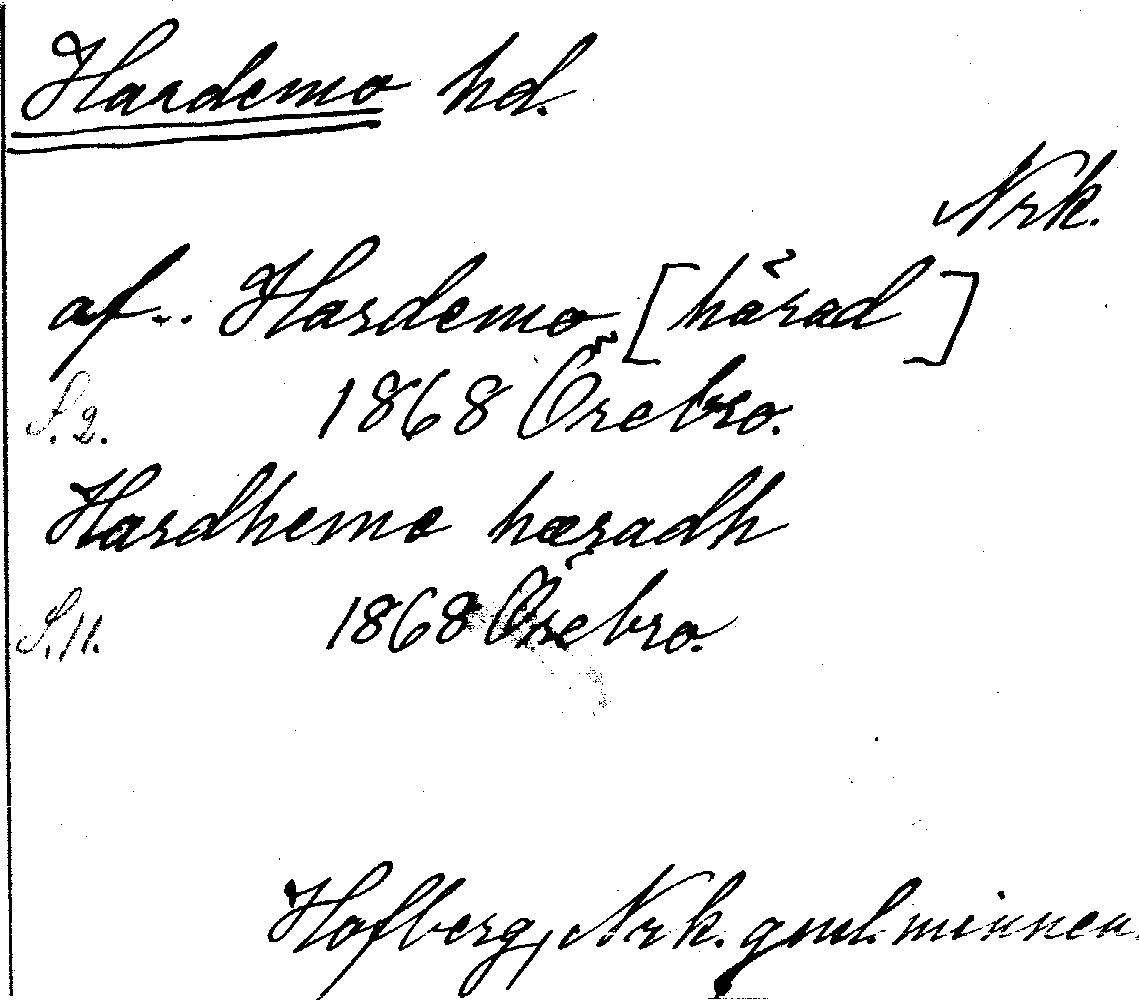 Hardemo hd.
Nrk.
af... Hardemo [härad]
S. 2. 1868 Örebro.
Hardhemo hæradh
S. 11. 1868 Örebro.
Hofberg, Nrk. gml. minnen.